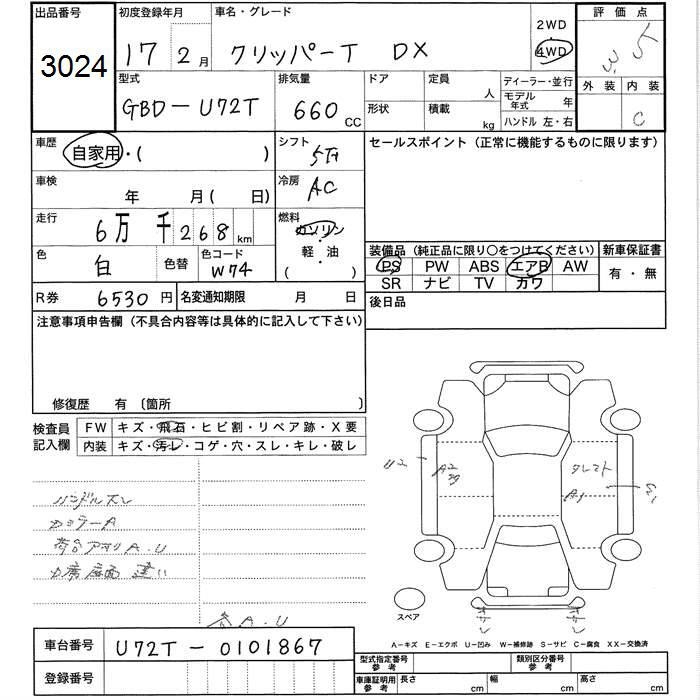 出品番号 初度登録年月 車名・グレード 2WD 評価点
3024 17 2月 クリッパーT DX 4WD
外装 内装
C
型式 排気量 ドア 定員 人 ディーラー・並行
GBD-U72T 660CC 形状 積載 kg モデル年式 年
ハンドル 左・右
車歴 シフト セールスポイント (正常に機能するものに限ります)
自家用・( ) 5F
車検 冷房
年 月( 日) AC
走行 燃料
6万 千268km ガソリン
軽・油
( )
色 色替 色コード
白 W74
装備品 (純正品に限り○をつけてください) 新車保証書
PS PW ABS エアB AW 有・無
SR ナビ TV カワ
R券 6530円 名変通知期限 月 日 後日品
注意事項申告欄 (不具合内容等は具体的に記入して下さい)
修復歴 有 〔箇所 〕
検査員記入欄 FW キズ・飛石・ヒビ割・リペア跡・X要
内装 キズ・汚レ・コゲ・穴・スレ・キレ・破レ
ハンドルスレ
U2 A2
A1
A.U
スペア
A.U
A-キズ E-エクボ U-凹み W-補修跡 S-サビ C-腐食 XX-交換済
車台番号 U72T-0101867
登録番号
型式指定番号参考 類別区分番号参考
車庫証明用参考 長さ cm 幅 cm 高さ cm